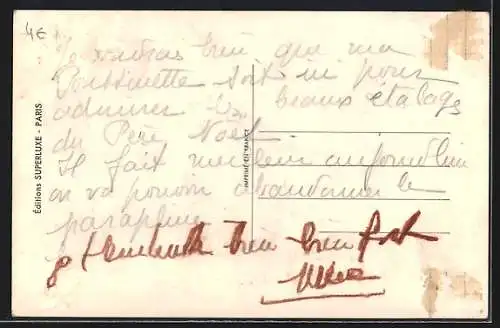 4€
Je voudrais bien que ma
Poussinette soit ici pour
admirer les beaux étalages
du Père Noël
Il fait meilleur aujourd'hui
on va pouvoir abandonner le
parapluie
bien bien fort
Éditions SUPERLUXE - PARIS
IMPRIMÉ EN FRANCE